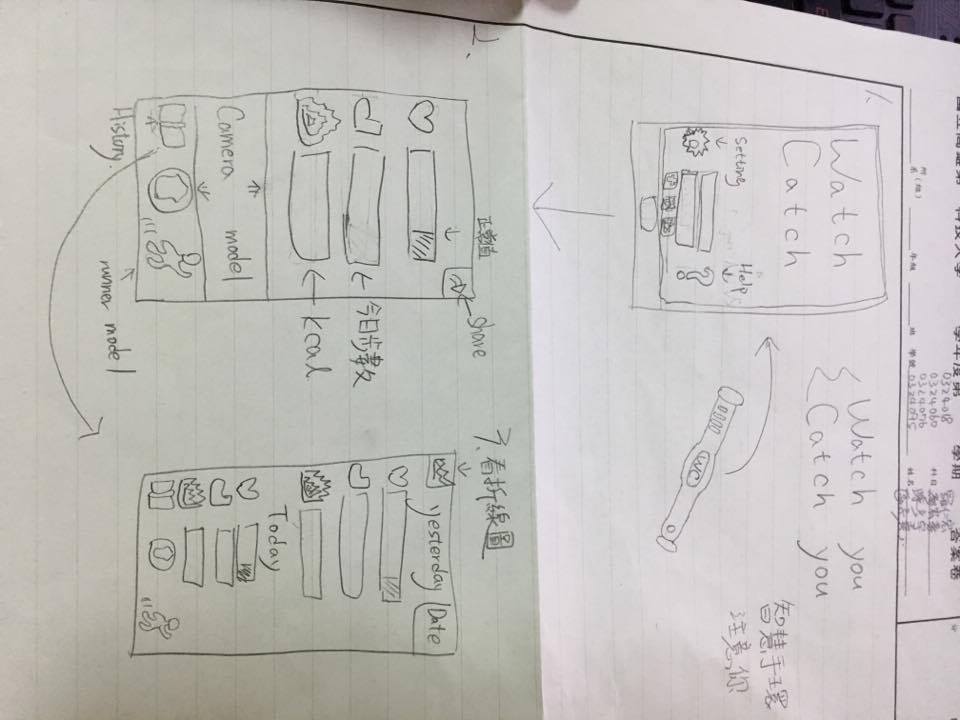 國立高雄第一科技大學 學年度第 學期 答案卷
所
系(組) 年級 班 學號 科目
姓名
分
0324018
0324060
0324076
0324095
1.
Watch
Catch
Setting
Help
Watch you
Catch you
WC
智慧手環
注意你
2.
正常值
share
今日步數
kcal
Camera model
History.
runner model
3.看折線圖
yesterday
Date
Today